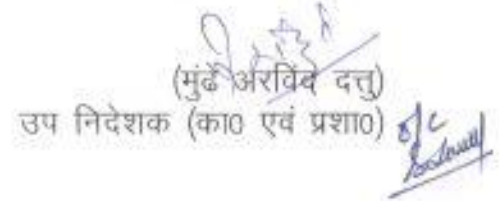 (मुंढें अरविंद दत्तु)
उप निदेशक (का0 एवं प्रशा0)